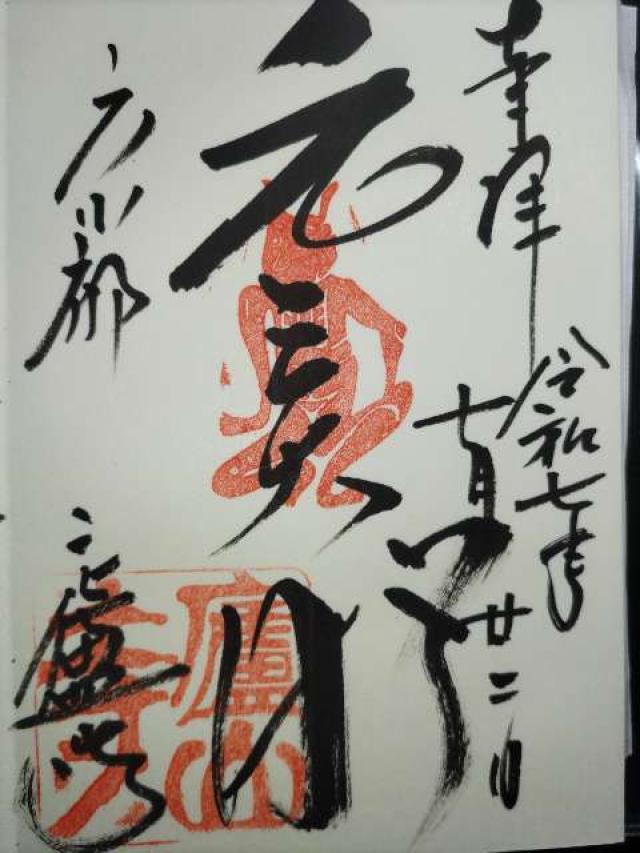 奉拝
令和七年
十月廿二日
元三大師
京都
廬山寺
廬山